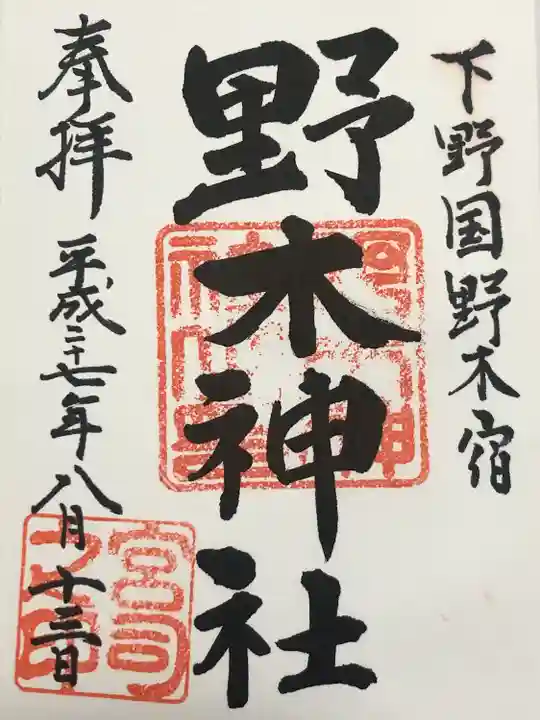 下野国野木宿
野木神社
奉拝
平成二十七年八月十三日
宮司之印